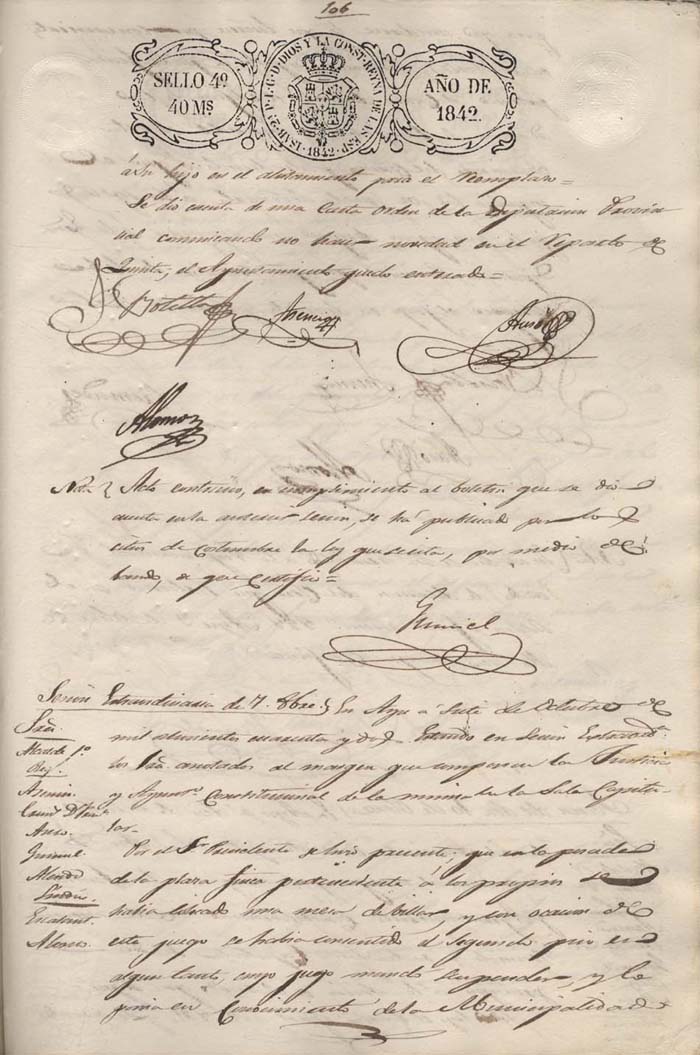 106
SELLO 4º
40 Mˢ
ISAB. 2ª P. L. G. D. DIOS Y LA CONST. REYNA DE LAS ESP.
1842
AÑO DE
1842.
á su hijo en el alistamiento para el Reemplazo=
Se dió cuenta de una Carta orden de la Diputacion Provin
cial comunicando no haver novedad en el Reparto de
Quinta; el Ayuntamiento quedó enterado=
Botella
Asencio
Auso
Alonso
Nota } Acto continuo, en cumplimiento al boletin que se dio
cuenta en la anterior sesion, se há publicado por los
citios de costumbre la ley que se cita, por medio de
bando, de que certifico=
Sesion Extraordinaria de 7. 8bre } En Aspe á siete de Octubre de
mil ochocientos cuarenta y dos Estando en Sesion Extraordª
los Sres. anotados al margen que componen la Justicia
y Ayuntº Constitucional de la misma en la Sala Capitu
lar-
Sres.
Alcalde 1º
Reg.
Asencio
Auso
Alonso
Por el Sr Presidente se hizo presente; que en la posada
de la plaza finca perteneciente á los propios se
habia colocado una mesa de billar y con ocasion de
este juego se habia consentido el segundo piso en
algun tanto, cuyo juego mandó suspender, y lo
ponia en Conocimiento de la Municipalidad